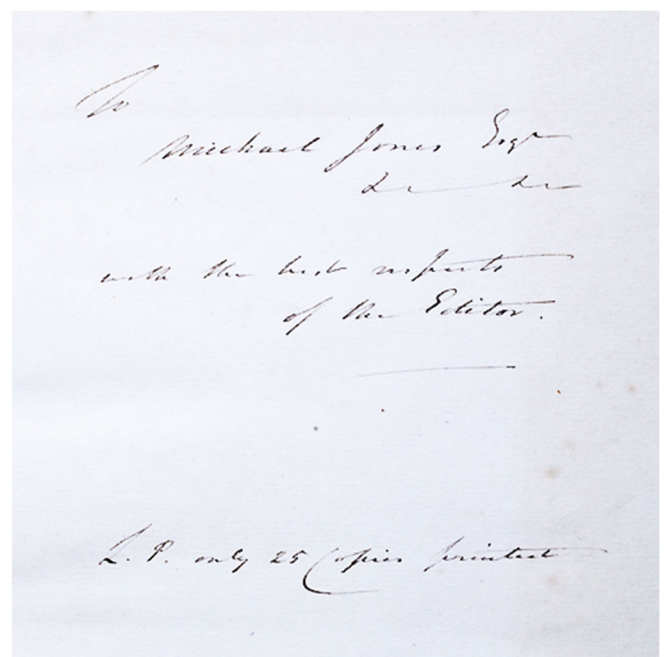 To
Michael Jones Esqr
&c &c
with the best respects
of the Editor.
L. P. only 25 Copies printed